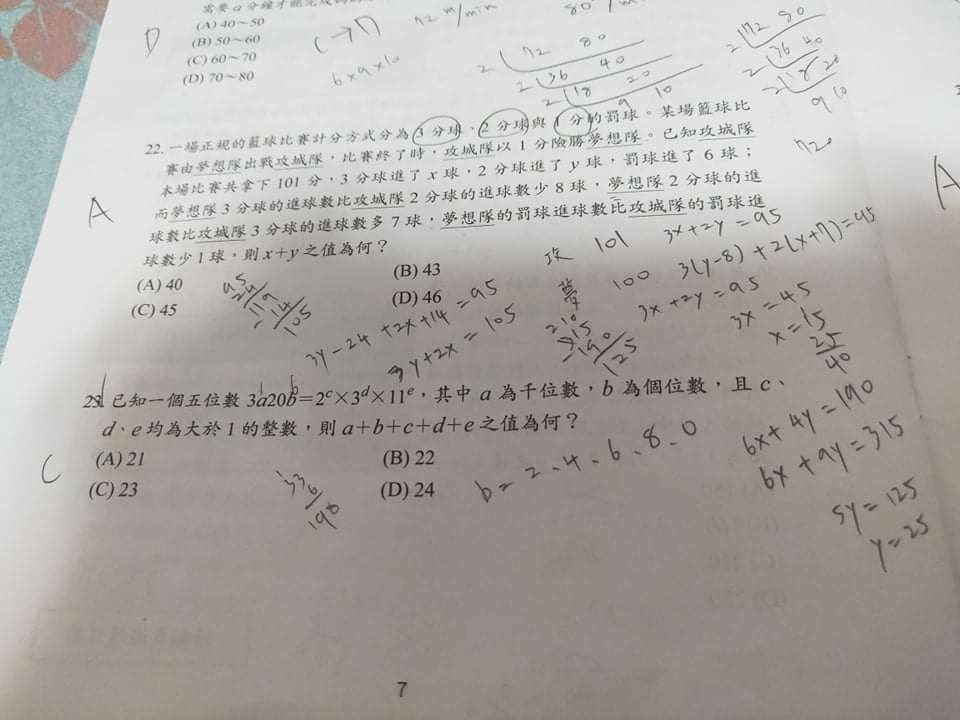 需要 a 分鐘才能完成
(A) 40～50
(B) 50～60
(C) 60～70
(D) 70～80
D
C→D
6×9×10
72 m/min
80
2 72 80
2 36 40
2 18 20
9 10
2 72 80
2 36 40
2 18 20
9 10
720
22. 一場正規的籃球比賽計分方式分為 3 分球、2 分球與 1 分的罰球。某場籃球比
賽由夢想隊出戰攻城隊，比賽終了時，攻城隊以 1 分險勝夢想隊。已知攻城隊
本場比賽共拿下 101 分，3 分球進了 x 球，2 分球進了 y 球，罰球進了 6 球；
而夢想隊 3 分球的進球數比攻城隊 2 分球的進球數少 8 球，夢想隊 2 分球的進
球數比攻城隊 3 分球的進球數多 7 球，夢想隊的罰球進球數比攻城隊的罰球進
球數少 1 球，則 x+y 之值為何？
A
(A) 40
(B) 43
(C) 45
(D) 46
攻 101
3x+2y=95
夢 100
3(y-8)+2(x+7)=95
3y-24+2x+14=95
3y+2x=105
3x+2y=95
3x=45
x=15
25
40
6x+4y=190
6x+9y=315
5y=125
y=25
23. 已知一個五位數 3a20b=2ᶜ×3ᵈ×11ᵉ，其中 a 為千位數，b 為個位數，且 c、
d、e 均為大於 1 的整數，則 a+b+c+d+e 之值為何？
C
(A) 21
(B) 22
(C) 23
(D) 24
b=2、4、6、8、0
33
6
198
7